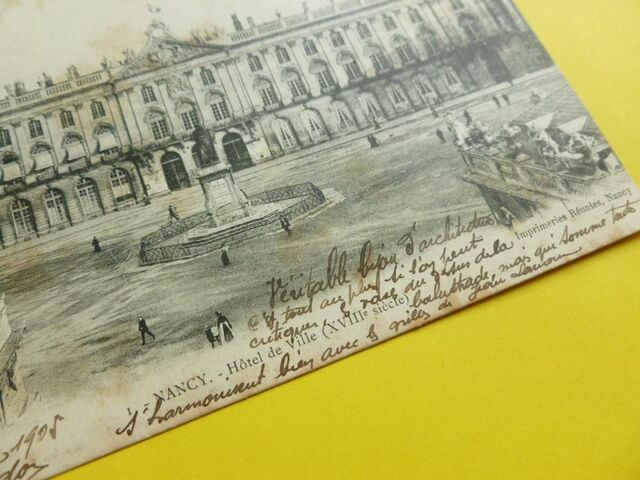 Imprimeries Réunies, Nancy
Véritable bijou d'architecture
C'est tout au plus si l'on peut
critiquer, le rose du dessus de la
balustrade, mais qui somme toute
s'harmonisent bien avec les grilles de Jean Lamour
1 - NANCY. - Hôtel de Ville (XVIIIe siècle)
1905